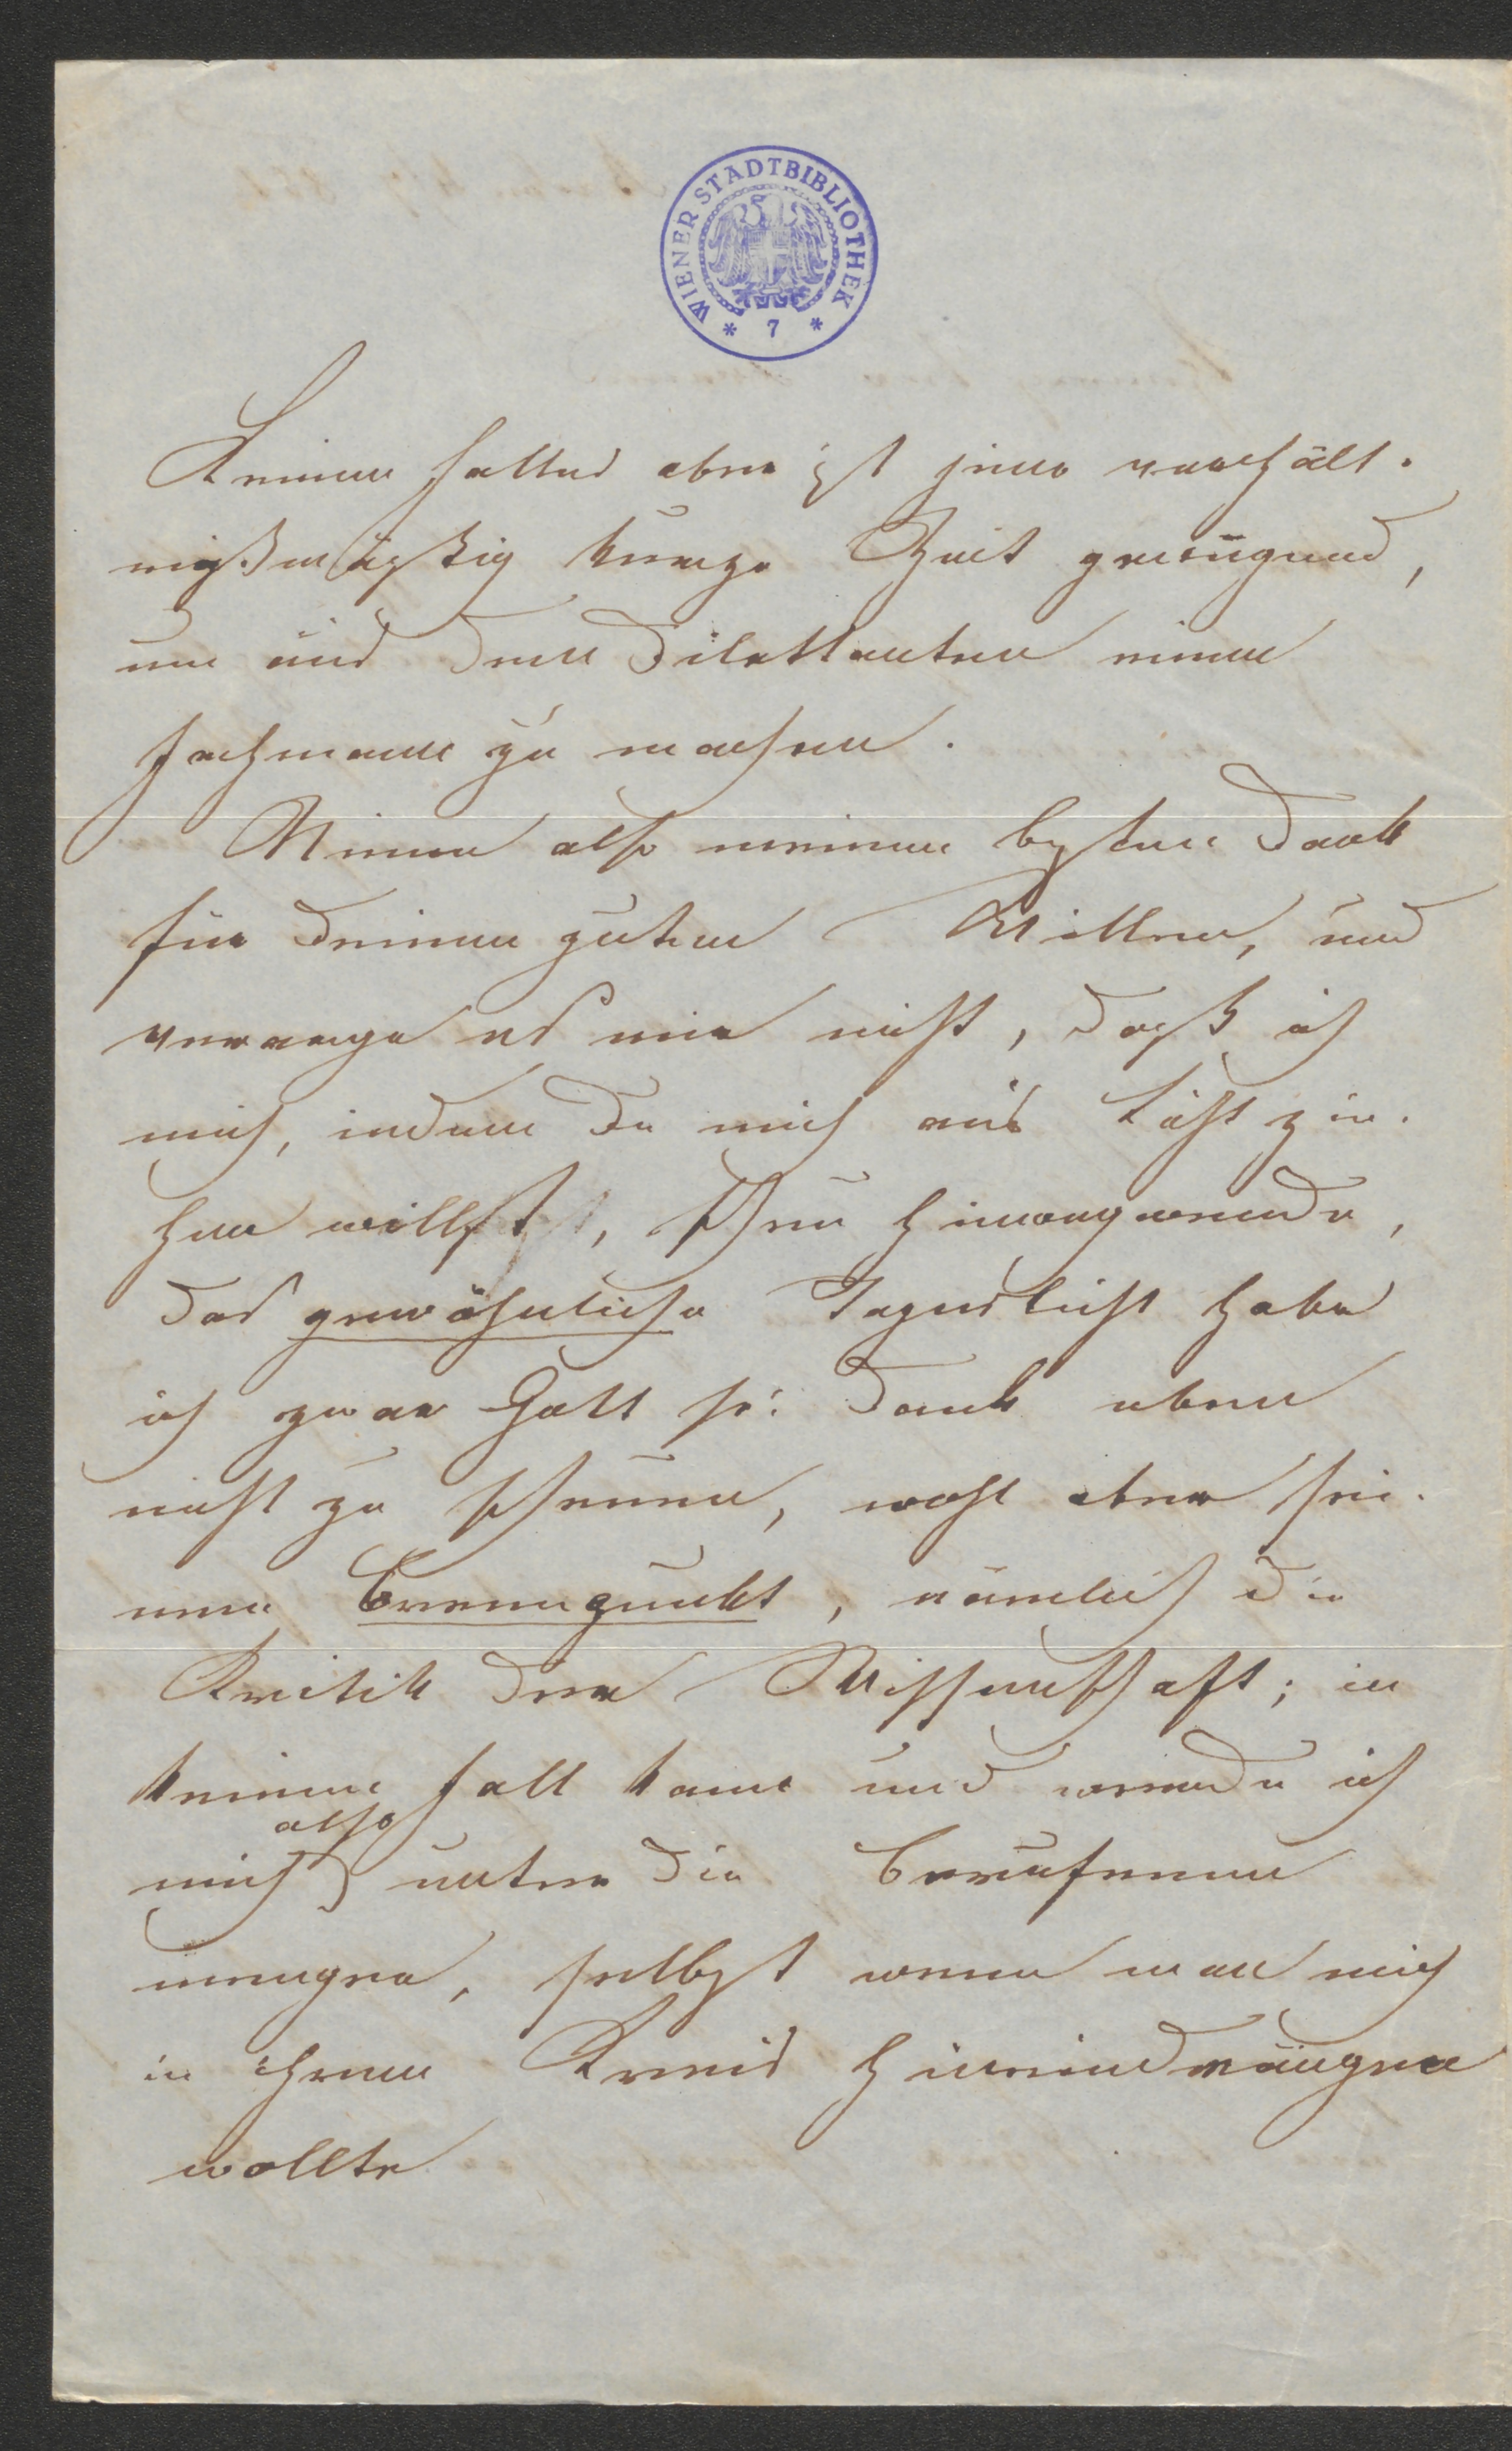 WIENER STADTBIBLIOTHEK
* 7 *
Keinen Falles aber ist jene verhält-
nißmäßig kurze Zeit genügend,
um aus dem Dilettanten einen
Fachmann zu machen.
Nimm also meinen besten Dank
für Deinen guten Willen, und
verarge es mir nicht, daß ich
mich, indem Du mich ans Licht zie-
hen willst, scheu hinwegwende,
das gewöhnliche Tageslicht habe
ich zwar Gott sei Dank eben
nicht zu scheuen, wohl aber sei-
nen Brennpunkt, nämlich die
Kritik der Wissenschaft; in
keinem Fall kann und werde ich
also
mich unter die Berufenen
mengen, selbst wenn man mich
in ihren Kreis hineindrängen
wollte